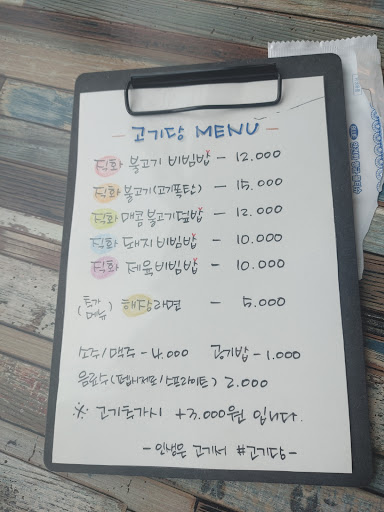 - 고기당 MENU -
직화 불고기 비빔밥* - 12.000
직화 불고기(고기폭탄) - 15.000
직화 매콤불고기덮밥* - 12.000
직화 돼지비빔밥* - 10.000
직화 제육비빔밥* - 10.000
(추가메뉴) 해장라면 - 5.000
소주/맥주 - 4.000 공기밥 - 1.000
음료수(펩시제로/스프라이트) 2.000
※ 고기추가시 +3.000원 입니다.
- 인생은 고기서 #고기당 -